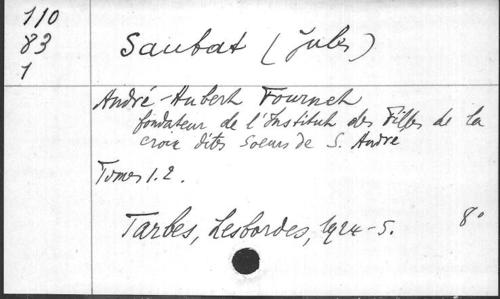 110
83
1
Saubat (Jules)
André-Hubert Fournet
fondateur de l'Institut des Filles de la
croix dites Soeurs de S. André
Tomes 1.2.
Tarbes, Lesbordes, 1924-5. 8°